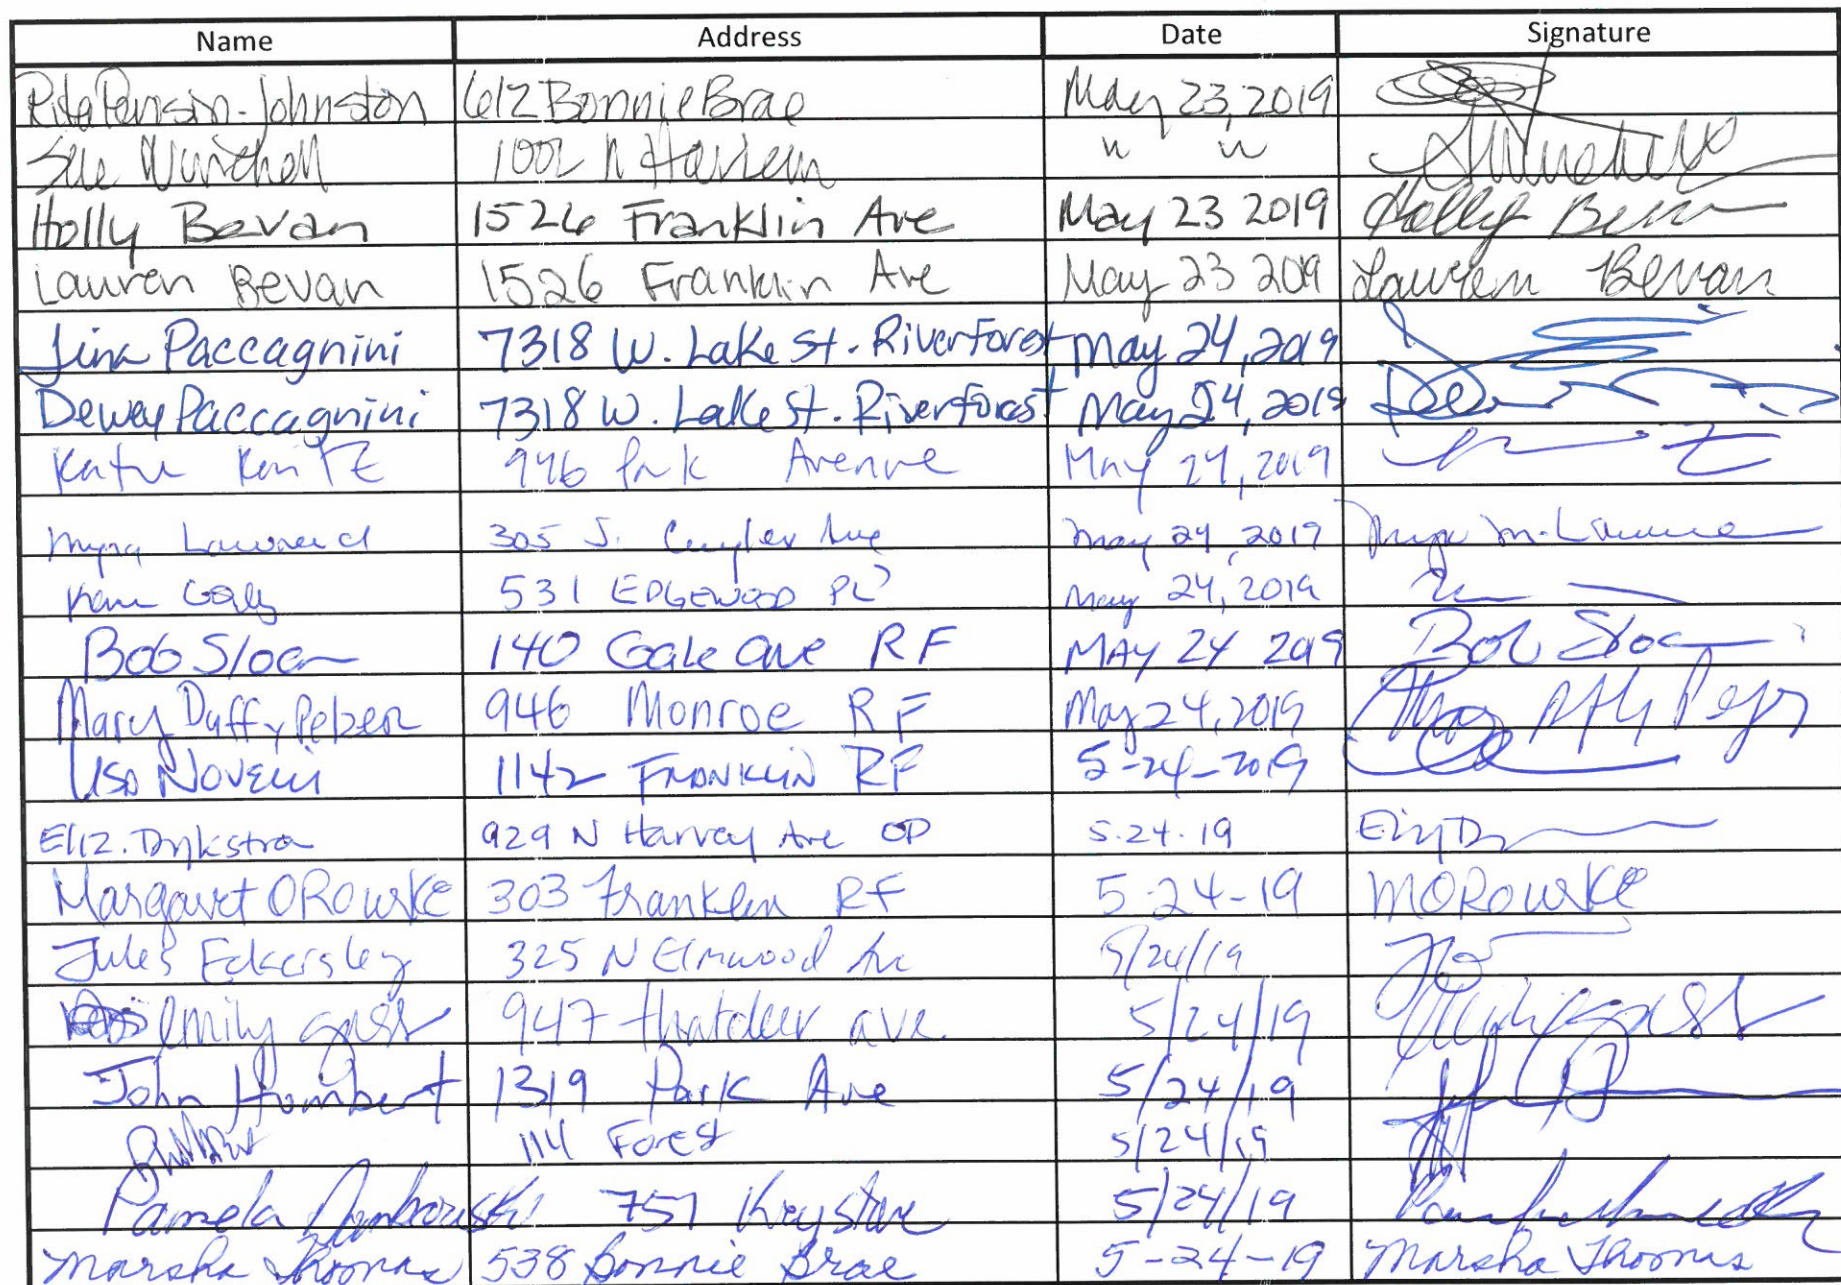 Name Address Date Signature
Rita Penson-Johnston 612 Bonnie Brae May 23, 2019
Sue Winchell 1002 N Harlem " "
Holly Bevan 1526 Franklin Ave May 23 2019 Holly Bevan
Lauren Bevan 1526 Franklin Ave May 23 2019 Lauren Bevan
Paccagnini 7318 W. Lake St. River Forest May 24, 2019
Dewey Paccagnini 7318 W. Lake St. River Forest May 24, 2019
946 Park Avenue May 24, 2019
Myra 305 S. Cuyler Ave May 24, 2019
531 EDGEWOOD PL May 24, 2019
Bob Sloan 140 Gale Ave RF MAY 24 2019 Bob Sloan
Mary Duffy Pelzer 946 Monroe RF May 24, 2019
Lisa Novelli 1142 Franklin RF 5-24-2019
Eliz. Dykstra 929 N Harvey Ave OP 5.24.19
Margaret OROURKE 303 Franklin RF 5-24-19 MOROURKE
Jules Eckersley 325 N Elmwood Av 5/24/19
emily gass 947 thatcher ave. 5/24/19
John Humbert 1319 Park Ave 5/24/19
114 Forest 5/24/19
Pamela 757 Keystone 5/24/19
Marsha Thomas 538 Bonnie Brae 5-24-19 Marsha Thomas